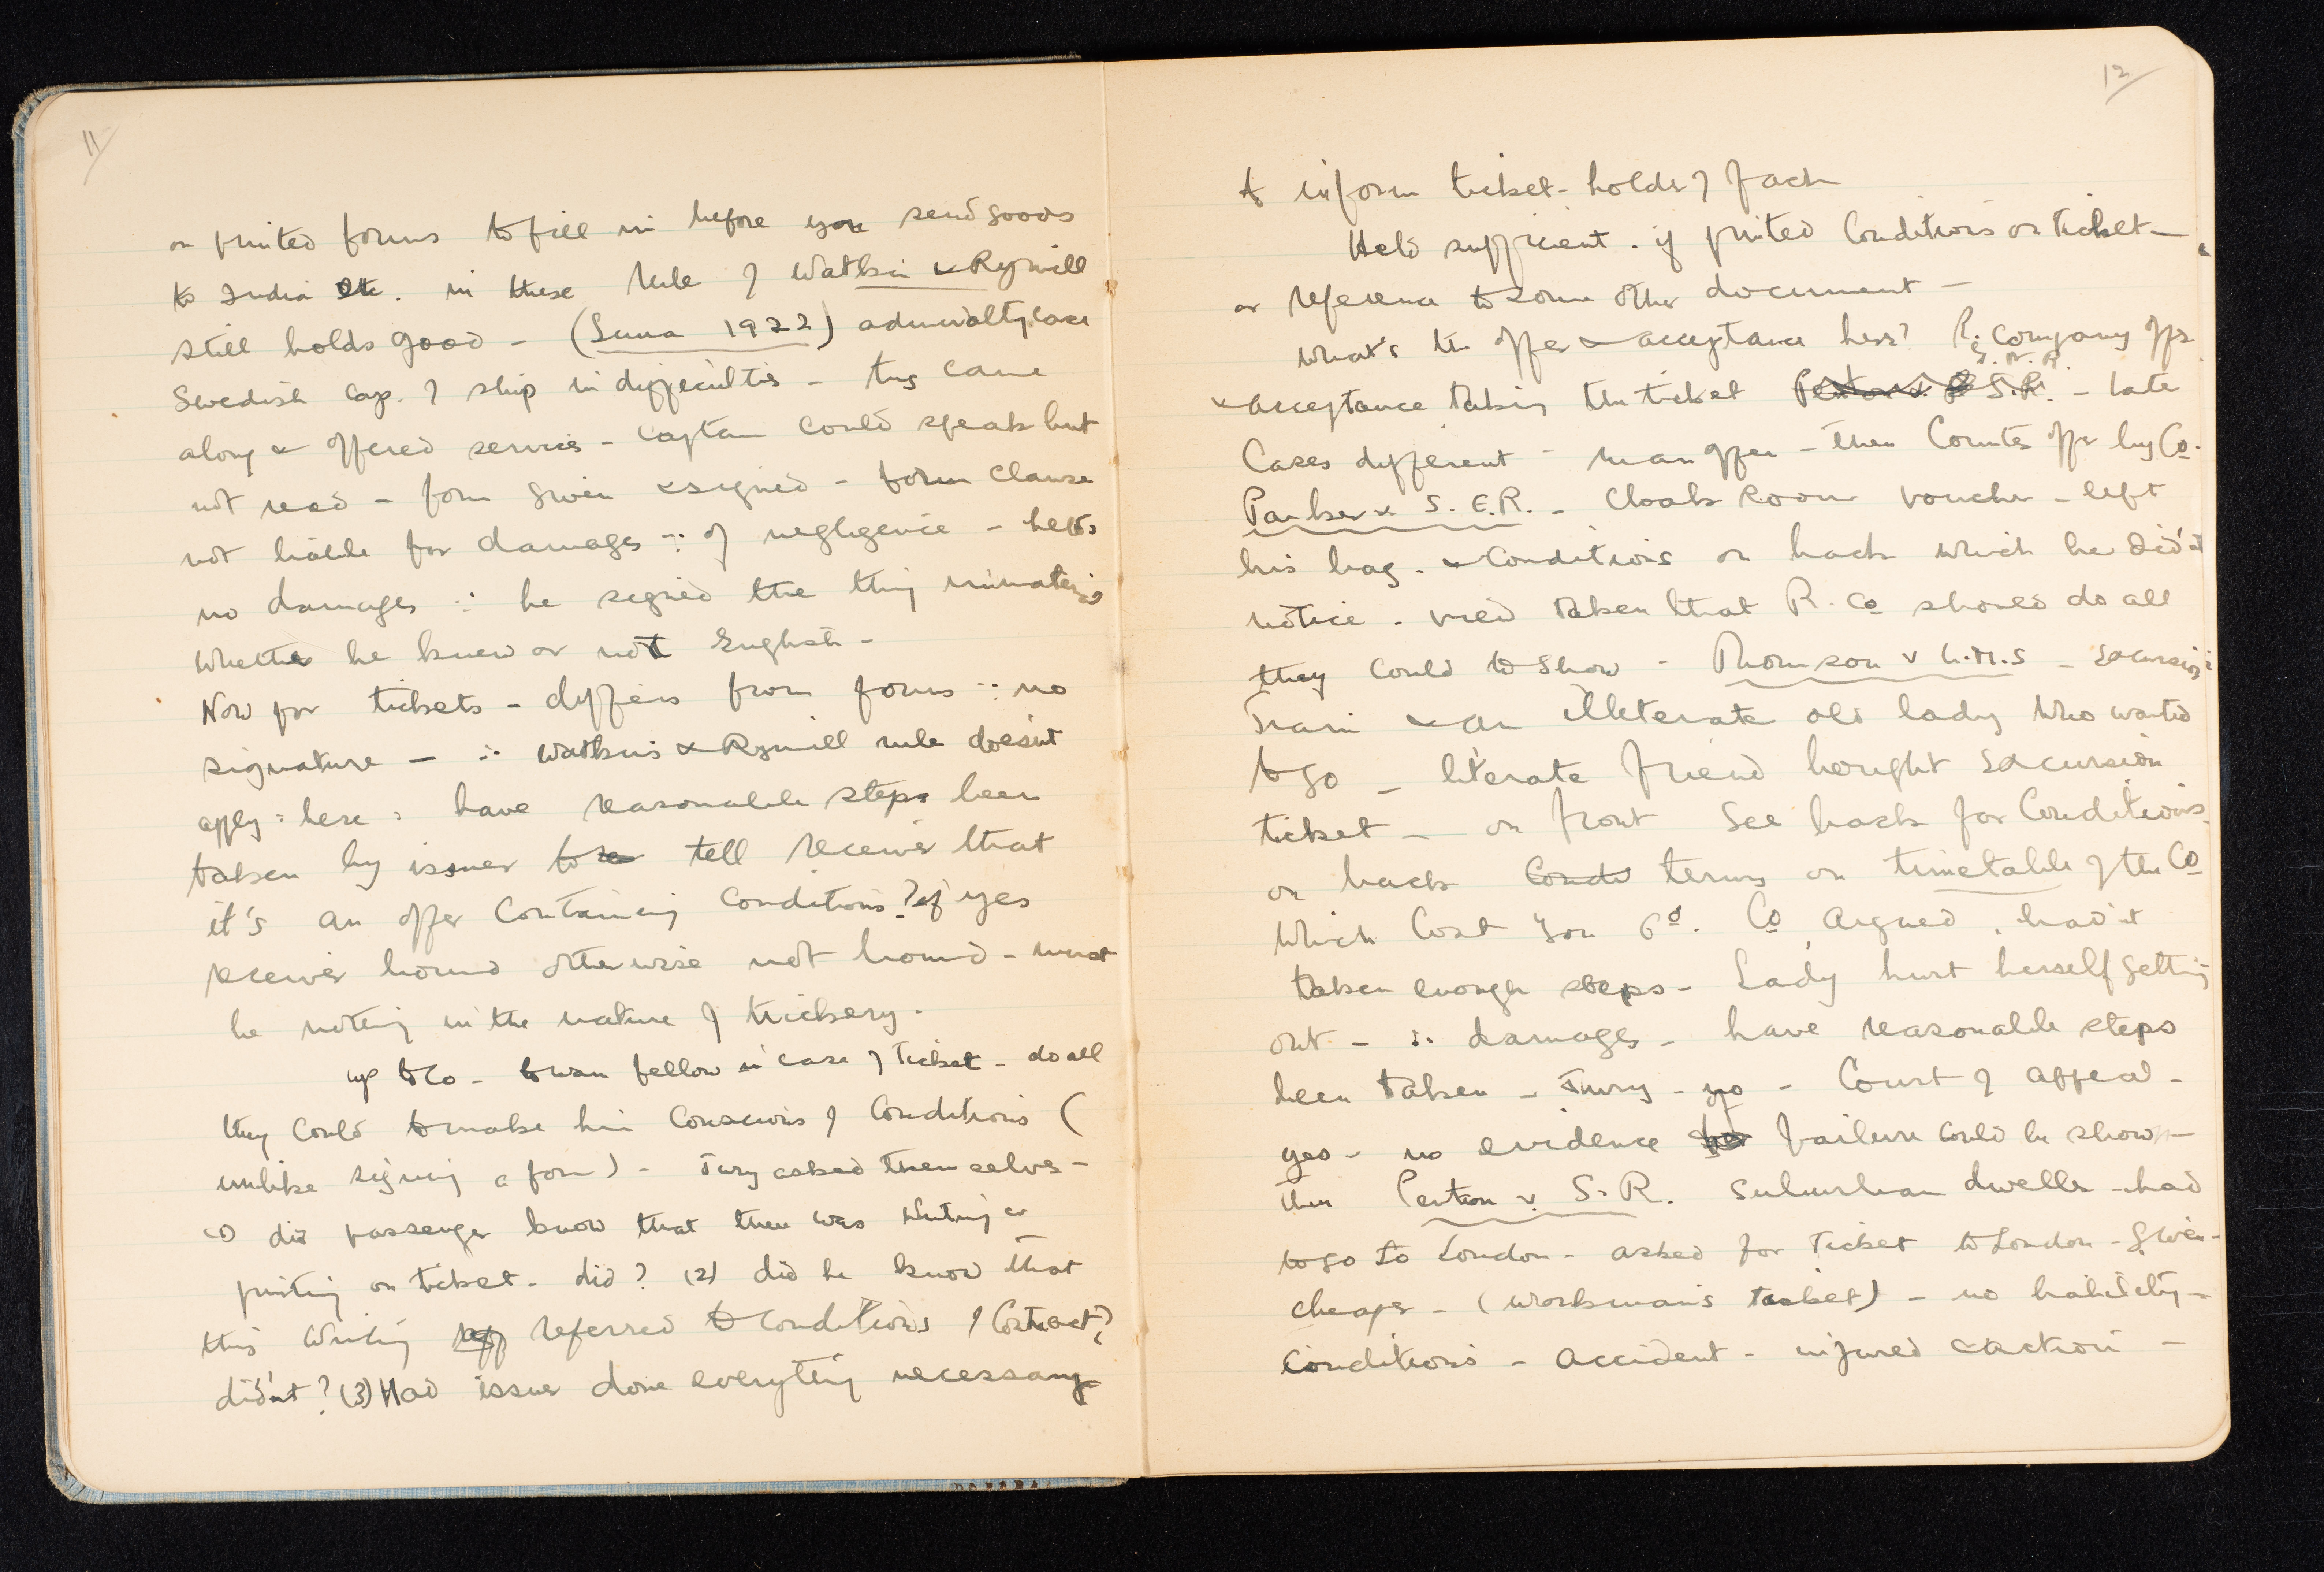 11
on printed forms to fill in before you send goods
to India etc. in these rule of Watkin & Rymill
still holds good - (Luna 1922) admiralty case
Swedish cap. of ship in difficulties - tug came
along & offered services - captain could speak but
not read - form given & signed - form clause
not liable for damages ∵ of negligence - held
no damages ∵ he signed the thing immaterial
whether he knew or not English -
Now for tickets - differs from forms ∵ no
signature - ∴ Watkins & Rymill rule doesn't
apply : here : have reasonable steps been
taken by issuer to tell receiver that
it's an offer containing conditions? if yes
receiver bound otherwise not bound - must
be nothing in the nature of trickery.
up to Co - to warn fellow in case of ticket - do all
they could to make him conscious of conditions (
unlike signing a form) - Jury asked themselves -
(1) did passenger know that there was writing or
printing on ticket - did? (2) did he know that
this writing referred to conditions of contract?
didn't? (3) Had issuer done everything necessary
12
to inform ticket-holder of fact
Held sufficient. if printed conditions on ticket -
or reference to some other document -
What's the offer & acceptance here? R. Company offer
& acceptance taking the ticket Penton v. S.R. - late
Cases different - man offer - then Counter offer by Co.
Parker v. S.E.R. - Cloak Room voucher - left
his bag. & Conditions on back which he didn't
notice. view taken that R. Co should do all
they could to show - Thomson v L.M.S - excursion
Train & an illiterate old lady who wanted
to go - literate friend bought excursion
ticket - on front see back for Conditions.
on back Condi terms on timetable of the Co
which cost you 6d. Co argued, hadn't
taken enough steps - Lady hurt herself getting
out - ∴ damages - have reasonable steps
been taken - Jury - no - Court of Appeal -
yes - no evidence failure could be shown -
then Penton v. S.R. suburban dweller - had
to go to London - asked for Ticket to London - given -
cheaper - (workman's ticket) - no liability -
conditions - accident - injured & action -